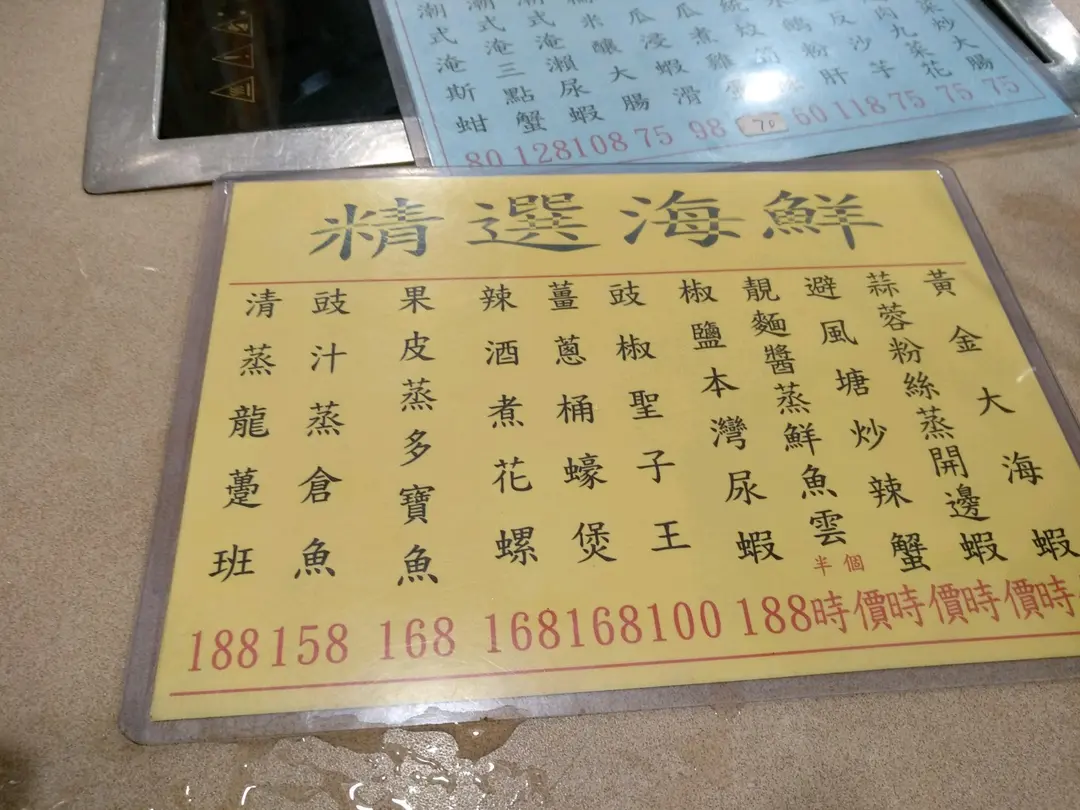 大腸 75
75
75
118
60
70
98
米釀大腸 75
式淹瀨尿蝦 108
式淹三點蟹 128
潮式淹斯蚶 80
精選海鮮
黃金大海蝦 時
蒜蓉粉絲蒸開邊蝦 時價
避風塘炒辣蟹 時價
靚麵醬蒸鮮魚雲 半個 時價
椒鹽本灣尿蝦 188
豉椒聖子王 100
薑蔥桶蠔煲 168
辣酒煮花螺 168
果皮蒸多寶魚 168
豉汁蒸倉魚 158
清蒸龍躉班 188